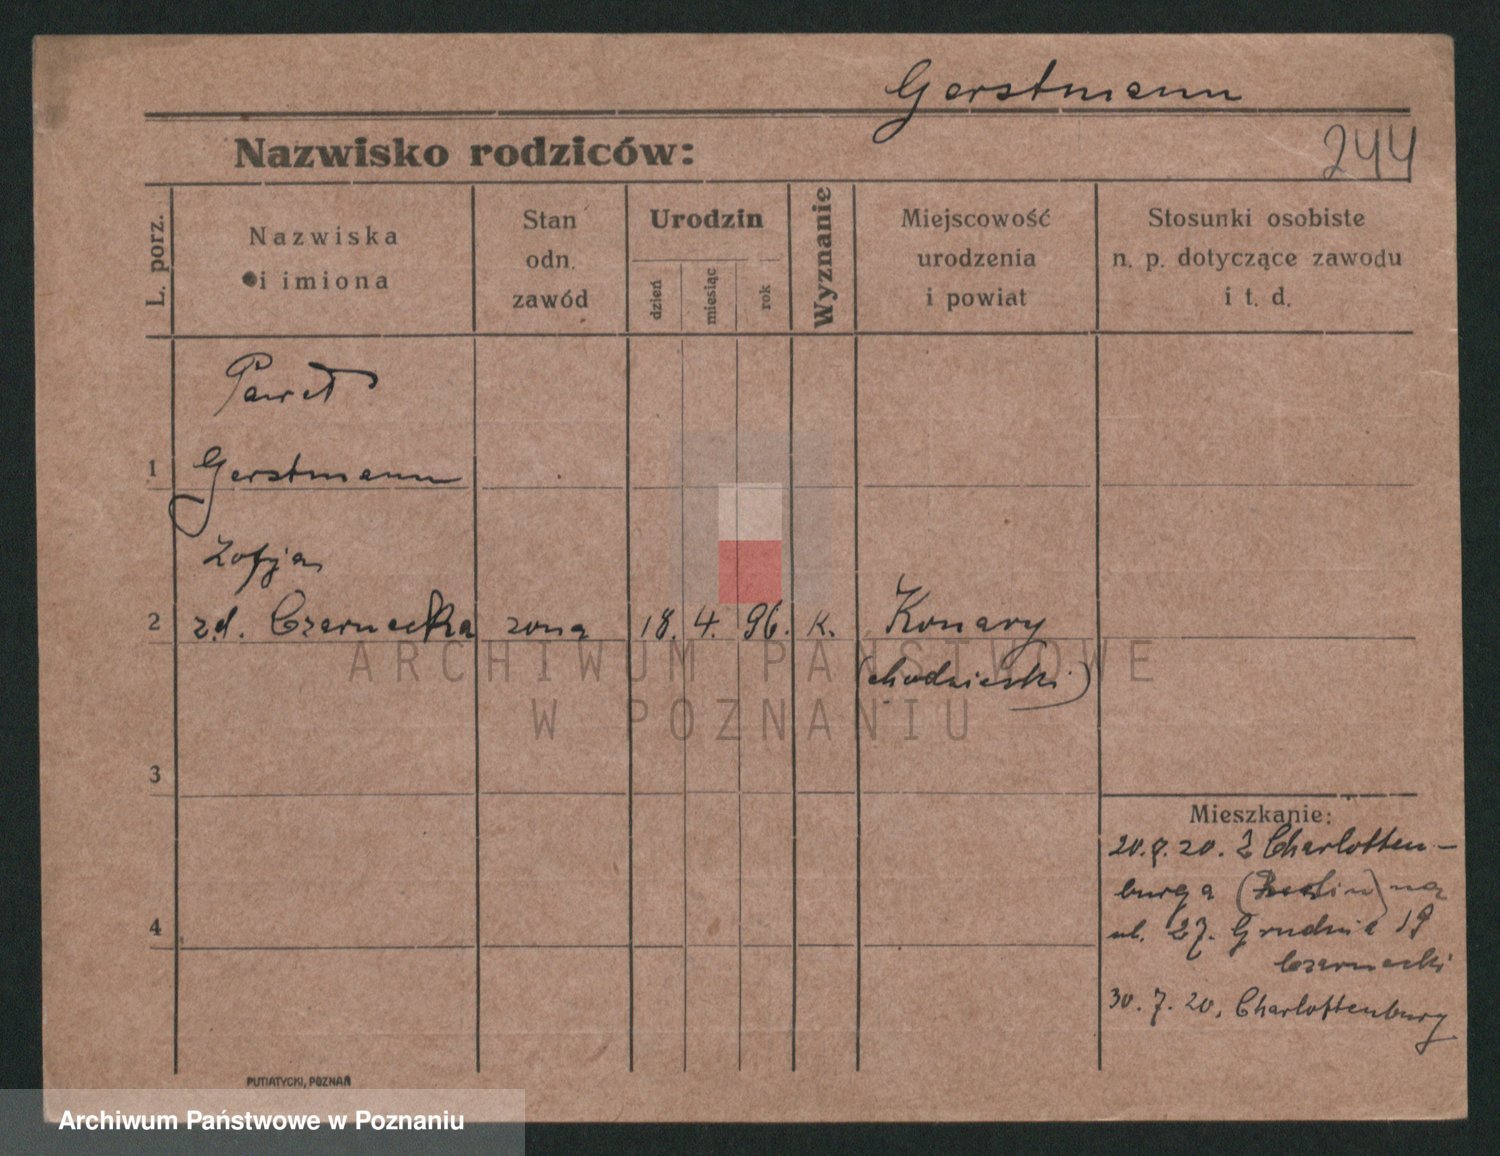 Gerstmann
244
Nazwisko rodziców:
L. porz.
Nazwiska
i imiona
Stan
odn.
zawód
Urodzin
dzień
miesiąc
rok
Wyznanie
Miejscowość
urodzenia
i powiat
Stosunki osobiste
n. p. dotyczące zawodu
i t. d.
Paweł
1 Gerstmann
Zofja
2 zd. Czarnecka żona 18. 4. 96. K. Konary
(chodzieski)
3
Mieszkanie:
20.7.20. Z Charlotten-
burga (Berlin) na
ul. 27. Grudnia 19
Czarnecki
4
30. 7. 20. Charlottenburg
PUTIATYCKI, POZNAŃ
ARCHIWUM PAŃSTWOWE
W POZNANIU
Archiwum Państwowe w Poznaniu